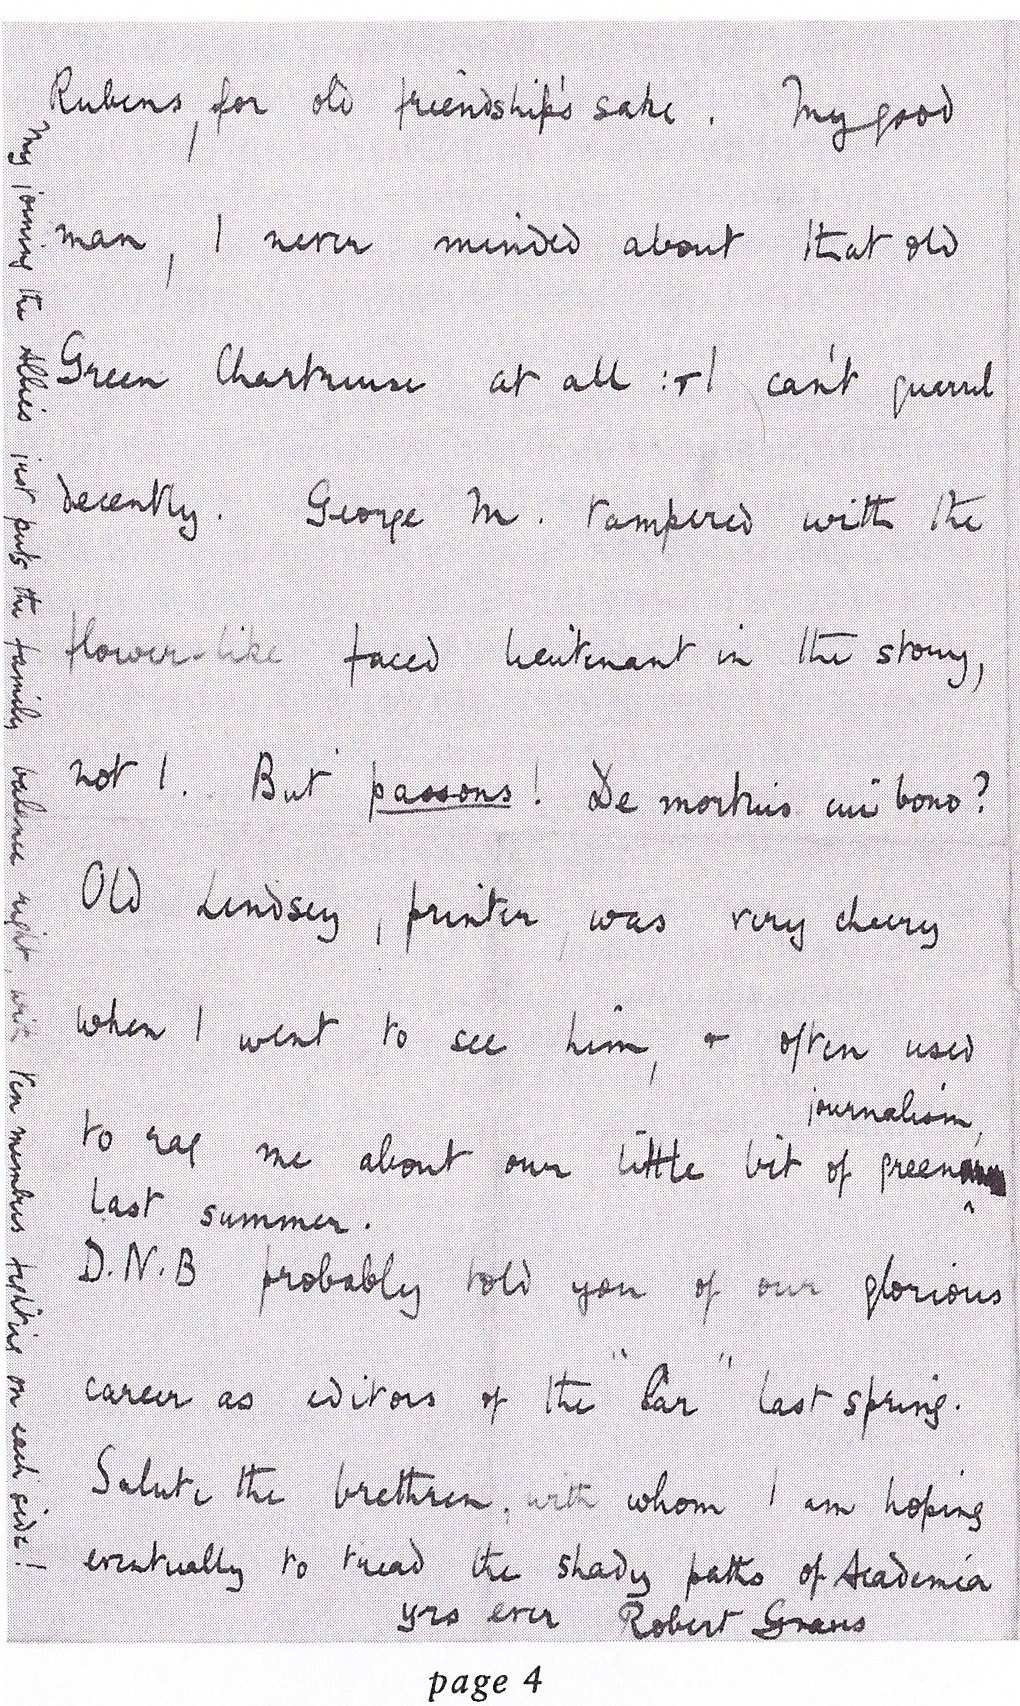 Rubens, for old friendship's sake. My good
man, I never minded about that old
Green Chartreuse at all :- I can't quarrel
decently. George M. tampered with the
flower-like faced lieutenant in the story,
not I. But passons! De mortuis cui bono?
Old Lindsey, printer, was very cheery
when I went to see him, & often used
journalism,
to rag me about our little bit of green
last summer.
D.N.B probably told you of our glorious
career as editors of the "Ear" last spring.
Salute the brethren, with whom I am hoping
eventually to tread the shady paths of Academia
yrs ever Robert Graves
My joining the Allies just puts the family balance right, with ten members fighting on each side!
page 4